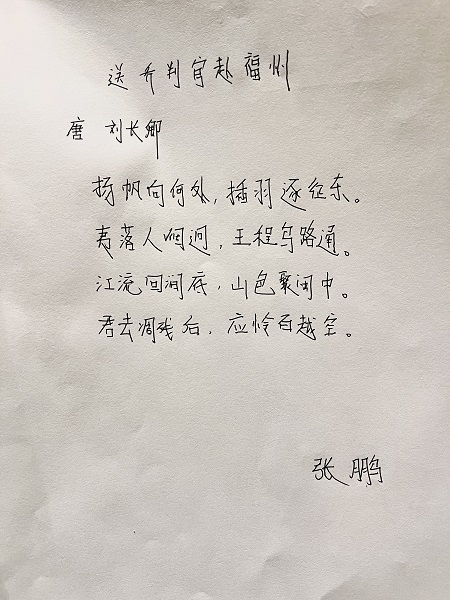 送乔判官赴福州
唐 刘长卿
扬帆向何处,插羽逐征东。
夷落人烟迥,王程鸟路通。
江流回涧底,山色聚闽中。
君去凋残后,应怜百越空。
张鹏